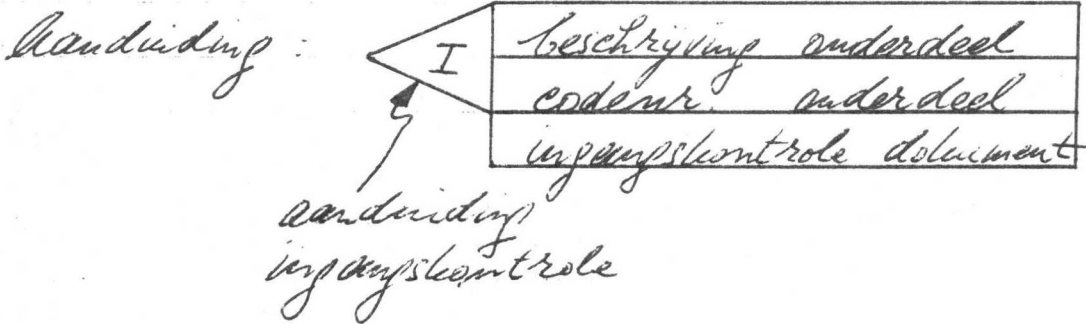 Aanduiding :
I
beschrijving onderdeel
codenr. onderdeel
ingangskontrole dokument
aanduiding
ingangskontrole